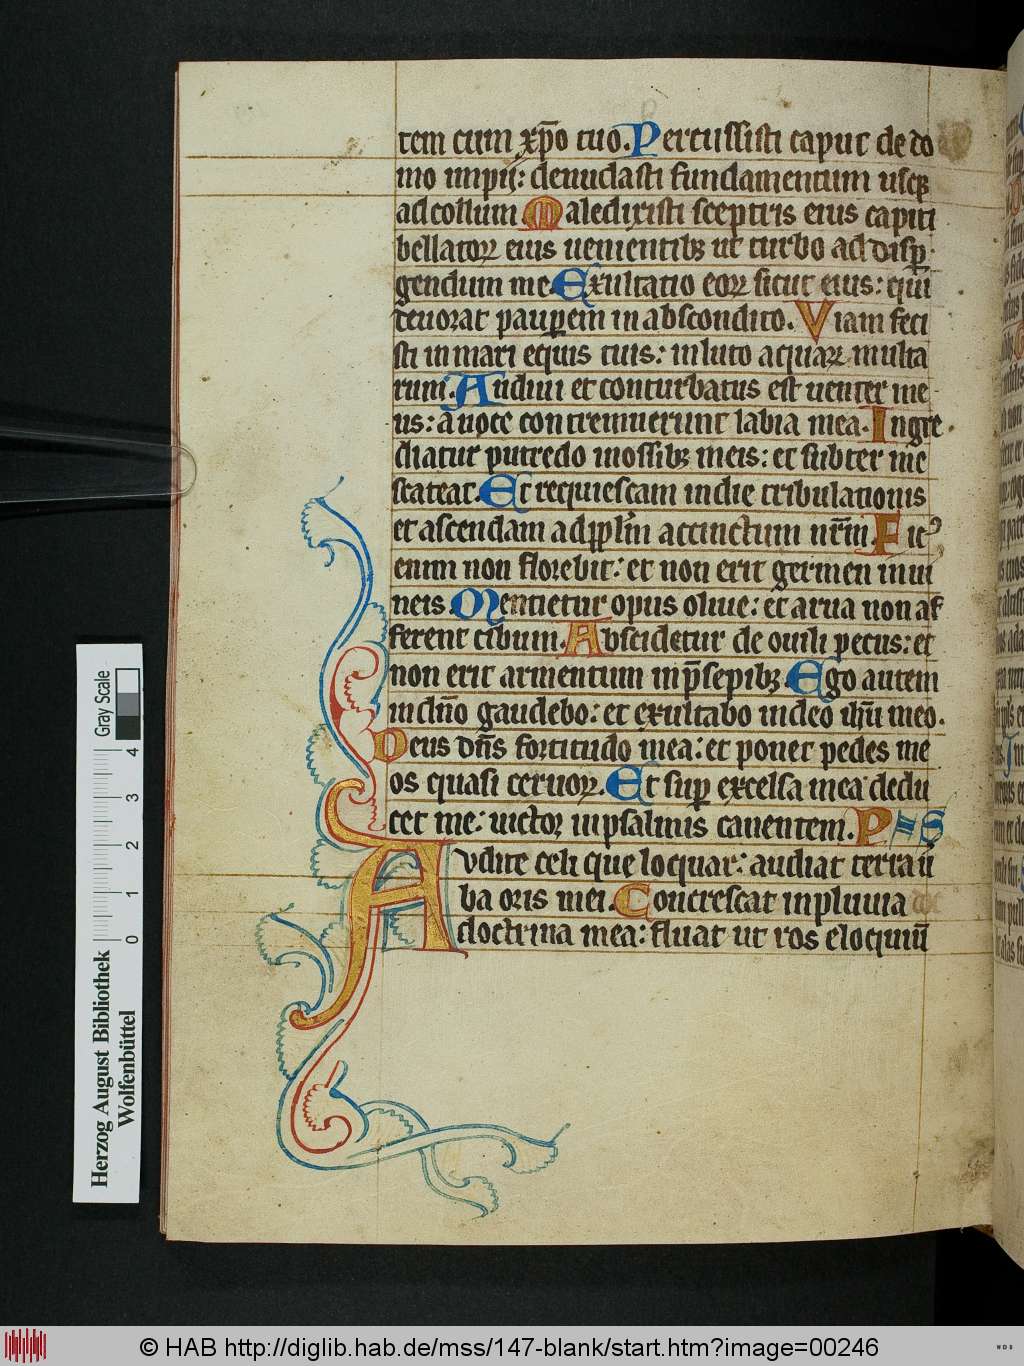 tem cum xp̄o tuo. Percussisti caput de do
mo impij: denudasti fundamentum usq̣
ad collum Maledixisti sceptris eius capiti
bellatoꝝ eius uenientibꝫ ut turbo ad disꝑ
gendum me. Exultatio eoꝝ sicut eius: qui
deuorat pauꝑem in abscondito. Viam feci
sti in mari equis tuis: in luto aquaꝝ multa
rum. Audiui et conturbatus est uenter me
us: a uoce contremuerunt labia mea. Ingre
diatur putredo in ossibꝫ meis: et subter me
scateat. Et requiescam in die tribulationis
et ascendam ad pplm̄ accinctum nr̄m. Ficꝰ
enim non florebit: et non erit germen in ui
neis. Mentietur opus oliue: et arua non af
ferent cibum. Abscidetur de ouili pecus: et
non erit armentum in p̄sepibꝫ. Ego autem
in dn̄o gaudebo: et exultabo in deo ihū meo.
Deus dn̄s fortitudo mea: et ponet pedes me
os quasi ceruoꝝ. Et suꝑ excelsa mea dedu
cet me: uictor in psalmis canentem. P = S
Audite celi que loquar: audiat terra ū
ba oris mei. Concrescat in pluuia
doctrina mea: fluat ut ros eloquiū
Gray Scale
0 1 2 3 4
Herzog August Bibliothek
Wolfenbüttel
© HAB http://diglib.hab.de/mss/147-blank/start.htm?image=00246